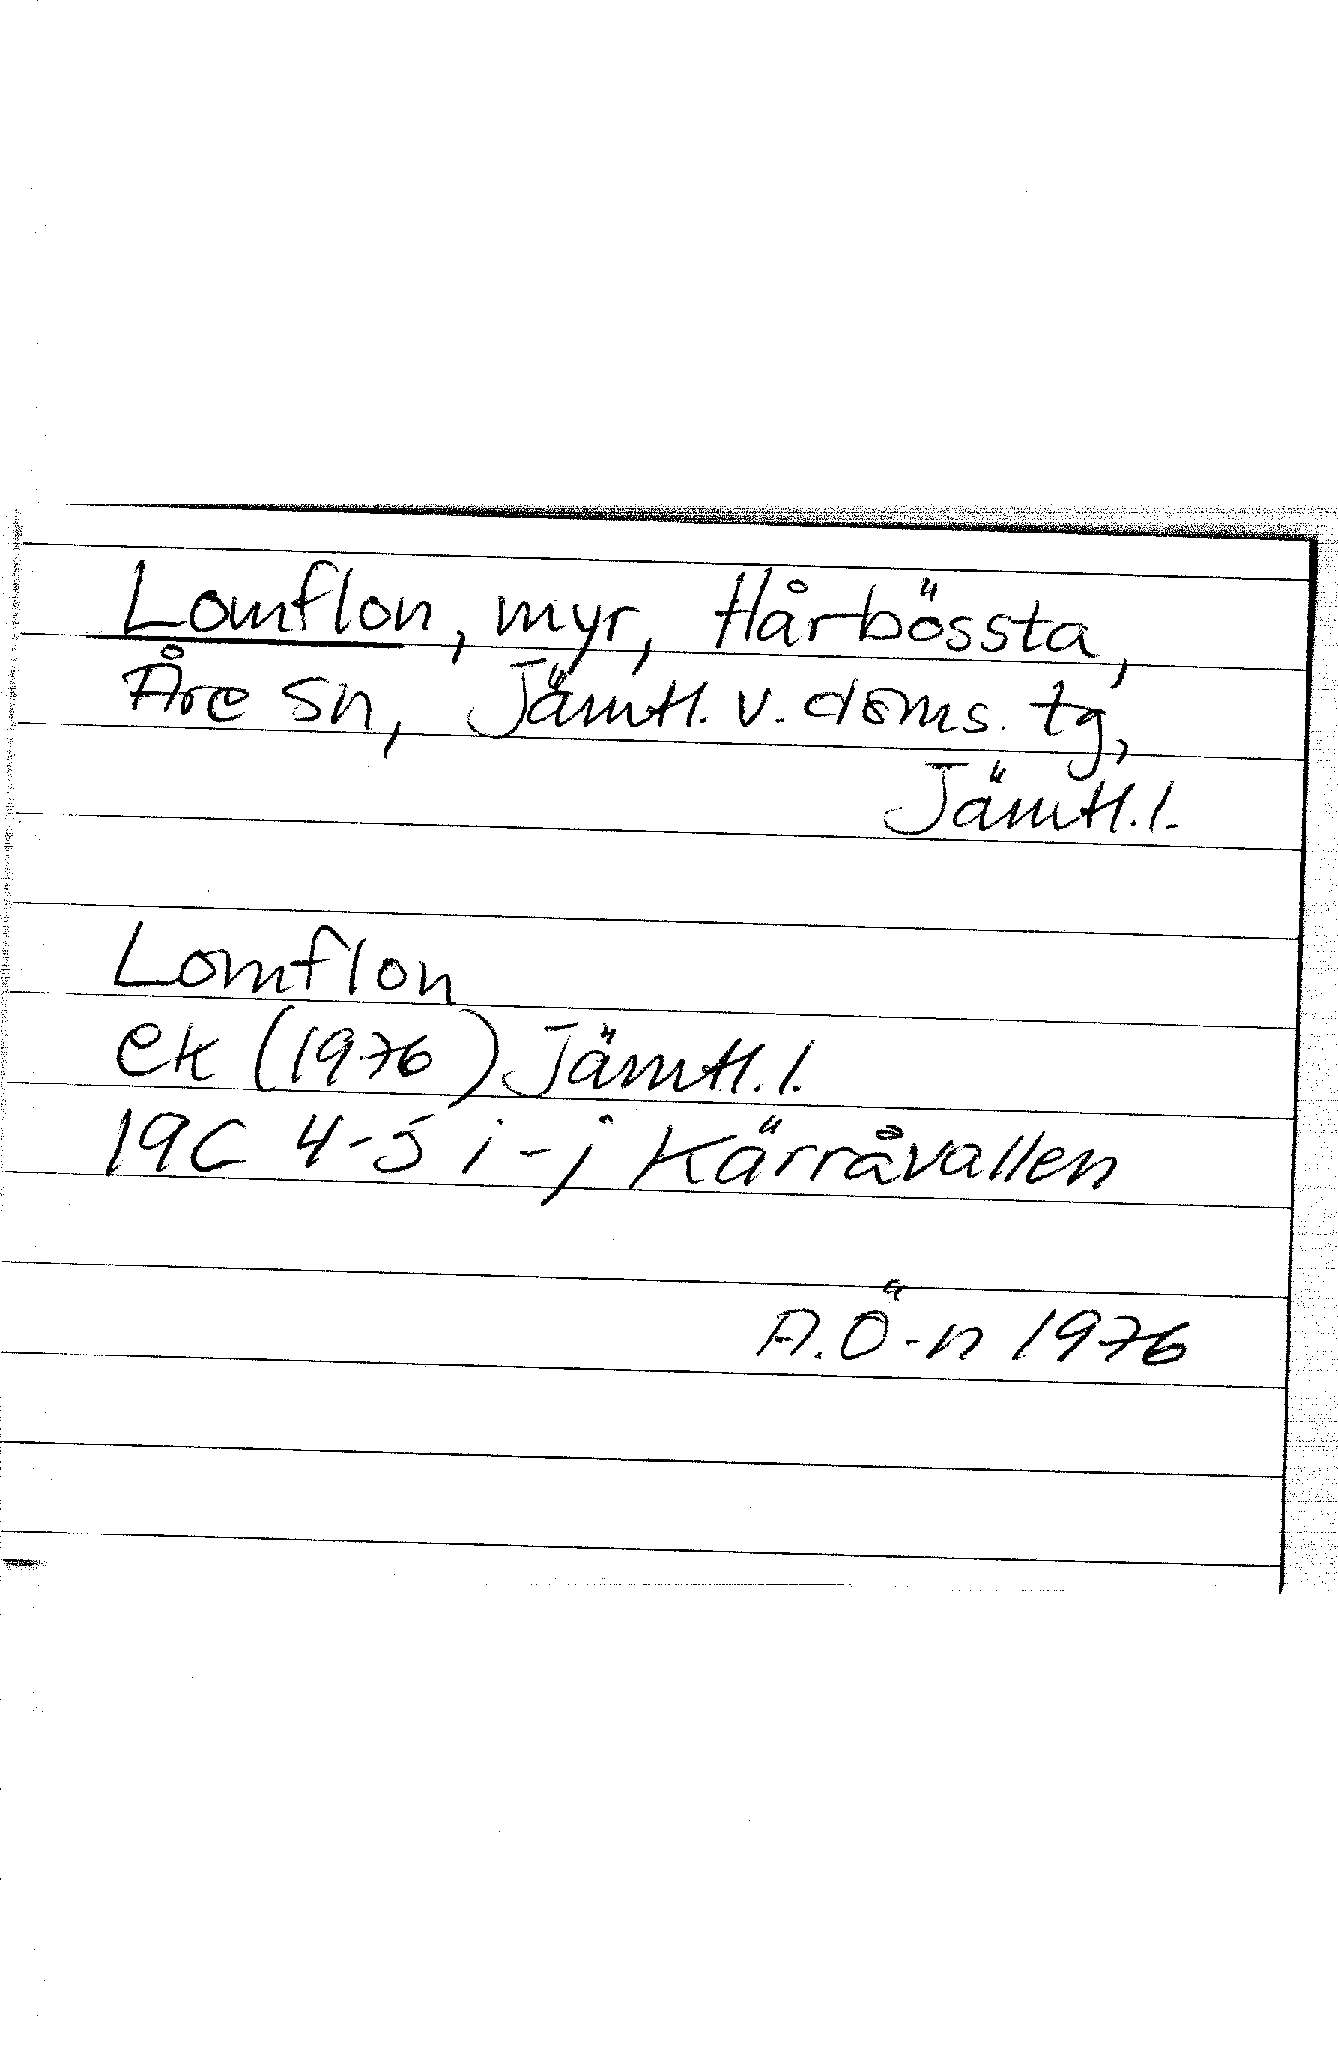 Lomflon, myr, Hårbössta,
Åre sn, Jämtl. v. doms. tg,
Jämtl. l.
Lomflon
ek (1976) Jämtl. l.
19C 4-5 i-j Kärråvallen
A.Ö-n 1976